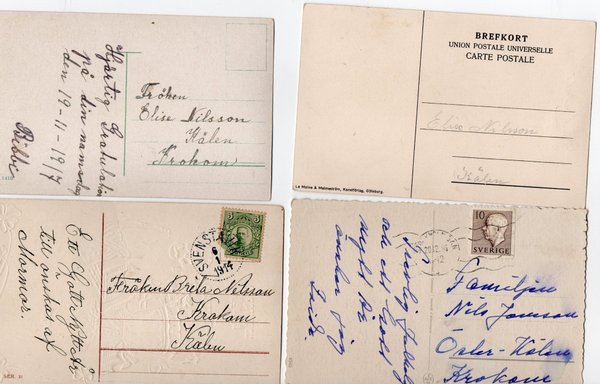 Hjärtlig Gratulation
på din namnsdag
den 19-11-1917
Bibbi
Fröken
Elise Nilsson
Kälen
Krokom
BREFKORT
UNION POSTALE UNIVERSELLE
CARTE POSTALE
Elise Nilsson
Kälen
Le Moine & Malmeström, Konstförlag, Göteborg.
Ett Gott Nytt År
tillönskas af
Mormor.
SER. 31
SVENST
1917
Fröken Brita Nilsson
Krokom
Kälen
Hjärtlig Julhelg
och ett Gott
nytt År
önskar jag
10
SVERIGE
Familjen
Nils Jonsson
Öster-Kälen
Krokom